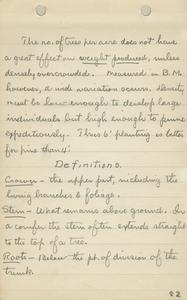 The no. of trees per acre does not have
a great effect on weight produced, unless
densely overcrowded. Measured in B.M.
however, a wide variation occurs. Density
must be low enough to develop large
individuals but high enough to prune
expeditiously. Thus 6' planting is better
for pine than 4'.
Definitions.
Crown - the upper part, including the
living branches & foliage.
Stem - What remains above ground. In
a conifer the stem often extends straight
to the top of a tree.
Root - Below the pt. of division of the
trunk.
82